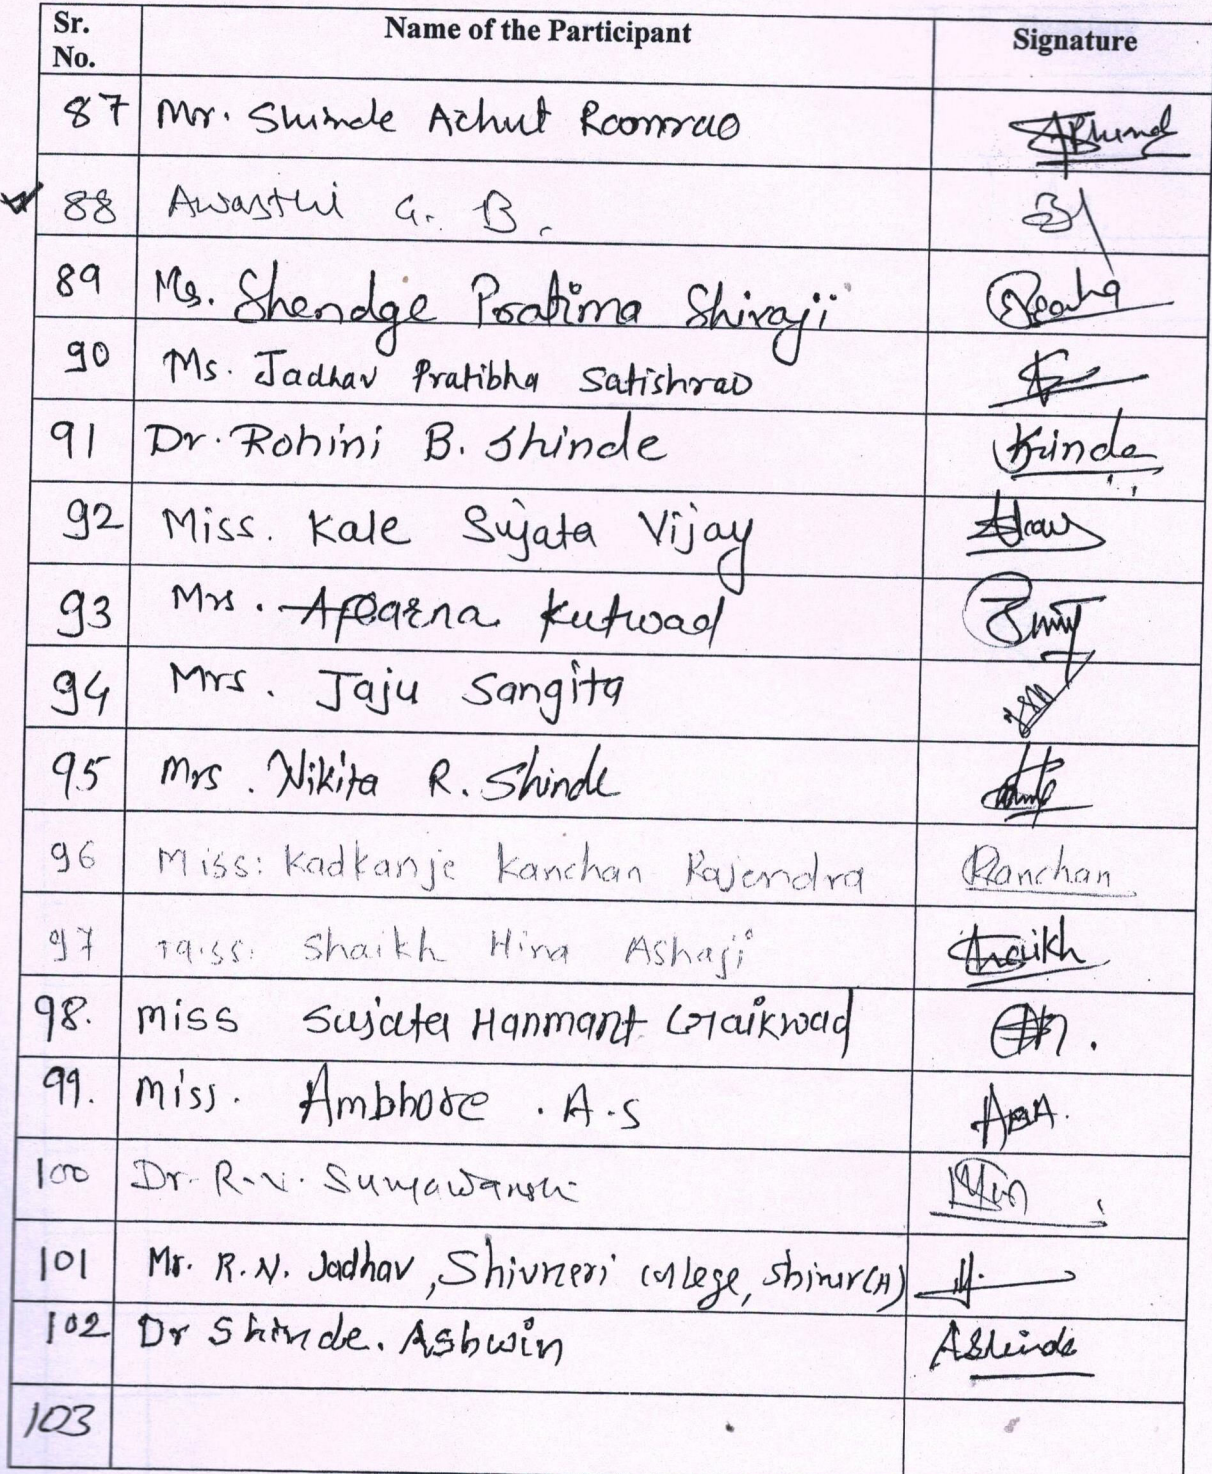 Sr. No. Name of the Participant Signature
87 Mr. Shinde Achut Roomrao
88 Awasthi G. B.
89 Ms. Shendge Pratima Shivaji
90 Ms. Jadhav Pratibha Satishrao
91 Dr. Rohini B. Shinde
92 Miss. Kale Sujata Vijay
93 Mrs. Aparna Kutwad
94 Mrs. Jaju Sangita
95 Mrs. Nikita R. Shinde
96 Miss: Kadkanje Kanchan Rajendra Kanchan
97 Miss. Shaikh Hina Ashaji Shaikh
98. Miss Sujata Hanmant Gaikwad
99. Miss. Ambhore . A.S
100 Dr. R.N. Suryawanshi
101 Mr. R.N. Jadhav, Shivneri College, Shirur(A)
102 Dr Shinde. Ashwin AShinde
103